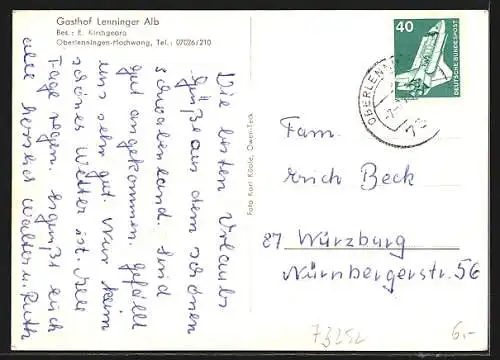 Gasthof Lenninger Alb
Bes.: E. Kirchgeorg
Oberlenningen-Hochwang, Tel.: 07026/210
Die besten Urlaubs
Grüße aus dem schönen
Schwabenland. Sind
gut angekommen. Gefällt
uns sehr gut. Nur kein
schönes Wetter ist. Alle
Tage regen. Es grüßt euch
alle herzlich Walter u. Ruth
Foto Kurt Köble, Owen-Teck
40
DEUTSCHE BUNDESPOST
OBERLENN
73
Fam.
Erich Beck
87 Würzburg
Nürnbergerstr. 56
73252
6,-